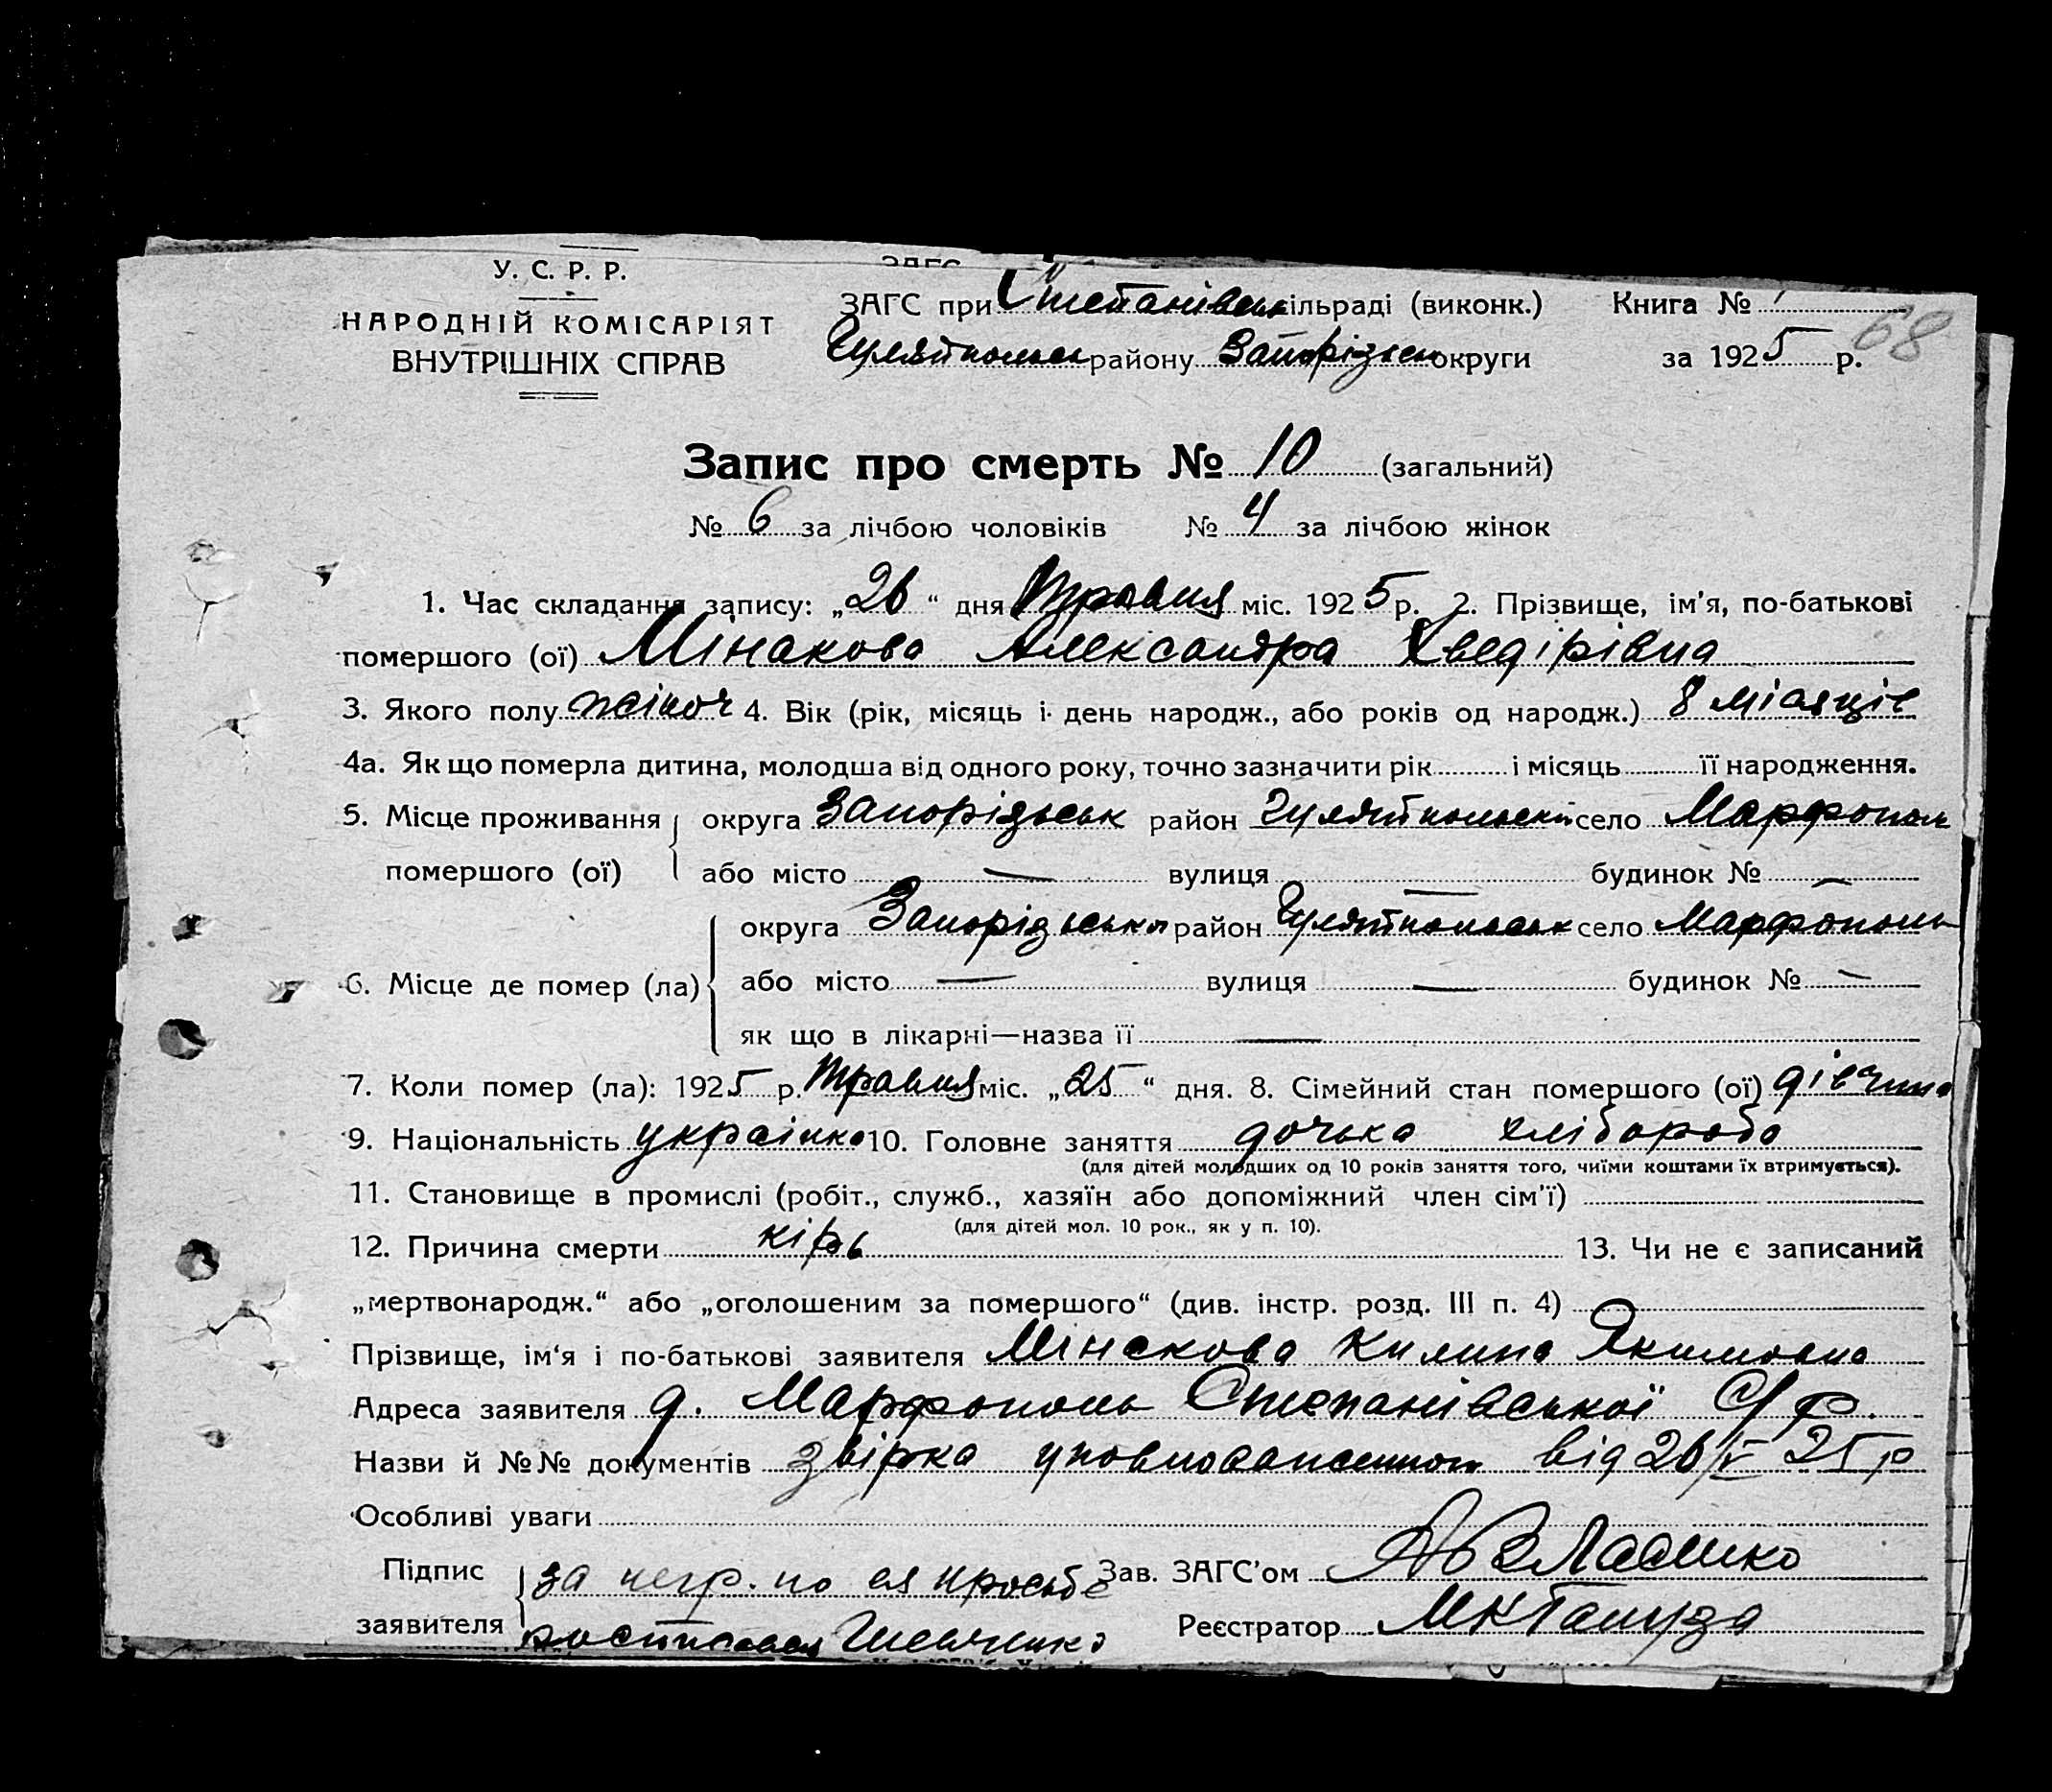 У. С. Р. Р.
НАРОДНІЙ КОМІСАРІЯТ
ВНУТРІШНІХ СПРАВ
ЗАГС при Степанівськ сільраді (виконк.) Книга №
Гуляйпольськ району Запорізьк округи за 1925 р.
68
Запис про смерть № 10 (загальний)
№ 6 за лічбою чоловіків № 4 за лічбою жінок
1. Час складання запису: „26“ дня травня міс. 1925 р. 2. Прізвище, ім'я, по-батькові
помершого (ої) Мінакова Александра Хведірівна
3. Якого полу жіноч 4. Вік (рік, місяць і день народж., або років од народж.) 8 місяців
4а. Як що померла дитина, молодша від одного року, точно зазначити рік і місяць її народження.
5. Місце проживання помершого (ої) округа Запорізьськ район Гуляйпольський село Марфополь
або місто — вулиця — будинок № —
6. Місце де помер (ла) округа Запорізьська район Гуляйпольськ село Марфополь
або місто — вулиця — будинок № —
як що в лікарні—назва її —
7. Коли помер (ла): 1925 р. травня міс. „25“ дня. 8. Сімейний стан помершого (ої) дівчина
9. Національність українка 10. Головне заняття дочька хлібороба
(для дітей молодших од 10 років заняття того, чиїми коштами їх втримується).
11. Становище в промислі (робіт., служб., хазяїн або допоміжний член сім'ї)
(для дітей мол. 10 рок., як у п. 10).
12. Причина смерти кірь 13. Чи не є записаний
„мертвонародж.“ або „оголошеним за помершого“ (див. інстр. розд. III п. 4)
Прізвище, ім'я і по-батькові заявителя Мінакова Килина Якимовна
Адреса заявителя д. Марфополь Степанівської С/р.
Назви й №№ документів звірка уповноваженного від 26/V 25 р
Особливі уваги
Підпис заявителя за негр. по ея просьбе Зав. ЗАГС'ом
росписался Шевченко Реєстратор